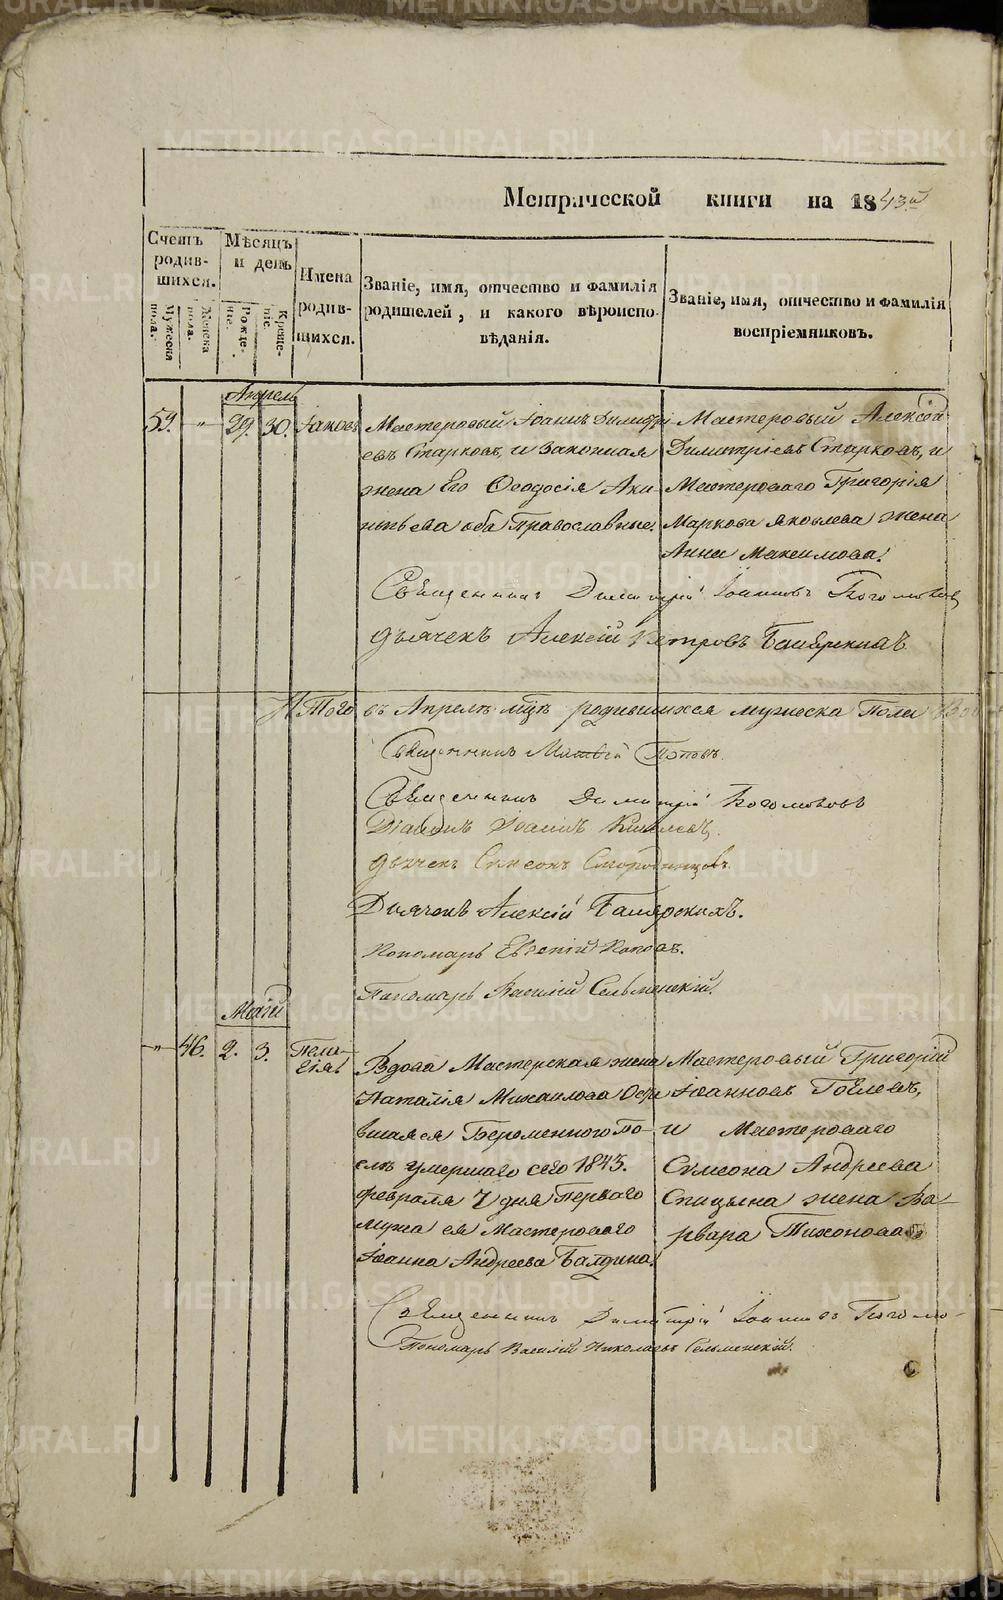 Метрической книги на 1843й
Счетъ родившихся.
Мужеска пола.
Женска пола.
Мѣсяцъ и день
Рожденіе.
Крещеніе.
Имена родившихся.
Званіе, имя, отчество и фамилія родителей, и какого вѣроисповѣданія.
Званіе, имя, отчество и фамилія воспріемниковъ.
Апрель
59. " 29. 30. Іаковъ
Мастеровый Іоаннъ Димитрі
евъ Старковъ, и Законная
жена Его Ѳеодосія Аки
нѳьева оба Православные.
Мастеровый Алексѣй
Димитріевъ Старковъ, и
Мастероваго Григорія
Маркова Яковлева жена
Анна Максимова.
Священникъ Димитрій Іоанновъ Богомоловъ
Дьячекъ Алексій Петровъ Баиярскихъ
Итого въ Апрелѣ мцѣ родившихся мужеска Пола
Священникъ Матвей Поповъ
Священникъ Димитрій Богомоловъ
Діаконъ Іоаннъ
Дьячекъ Симеонъ Смородинцовъ
Дьячекъ Алексій Баиярскихъ.
Пономарь Евгеній Поповъ.
Пономарь Василій Сельменскій.
Маій
" 46. 2. 3. Пела-
гія
Вдова Мастерская жена
Наталія Михаилова Оста
вшаяся Беременного По-
слѣ умершаго сего 1843.
февраля 7 дня Перваго
мужа ея Мастероваго
Іоанна Андреева Балдина.
Мастеровый Григорій
Іоанновъ Гоѣлевъ,
и Мастероваго
Симеона Андреева
Спицына жена Ва-
рвара Тихонова
Священникъ Димитрій Іоанновъ Богомо-
Пономарь Василій Николаевъ Сельменскій.
METRIKI.GASO-URAL.RU